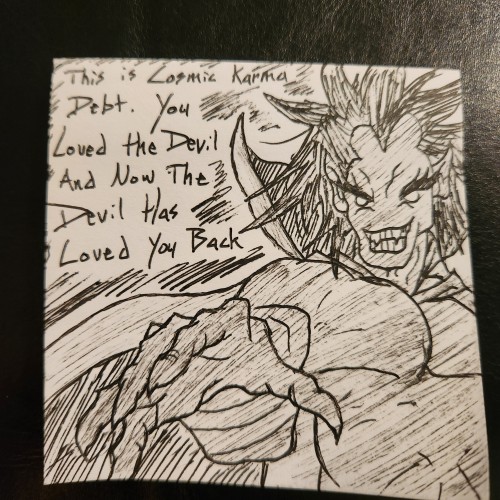 This is Cosmic Karma
Debt. You
Loved the Devil
And Now The
Devil Has
Loved You Back